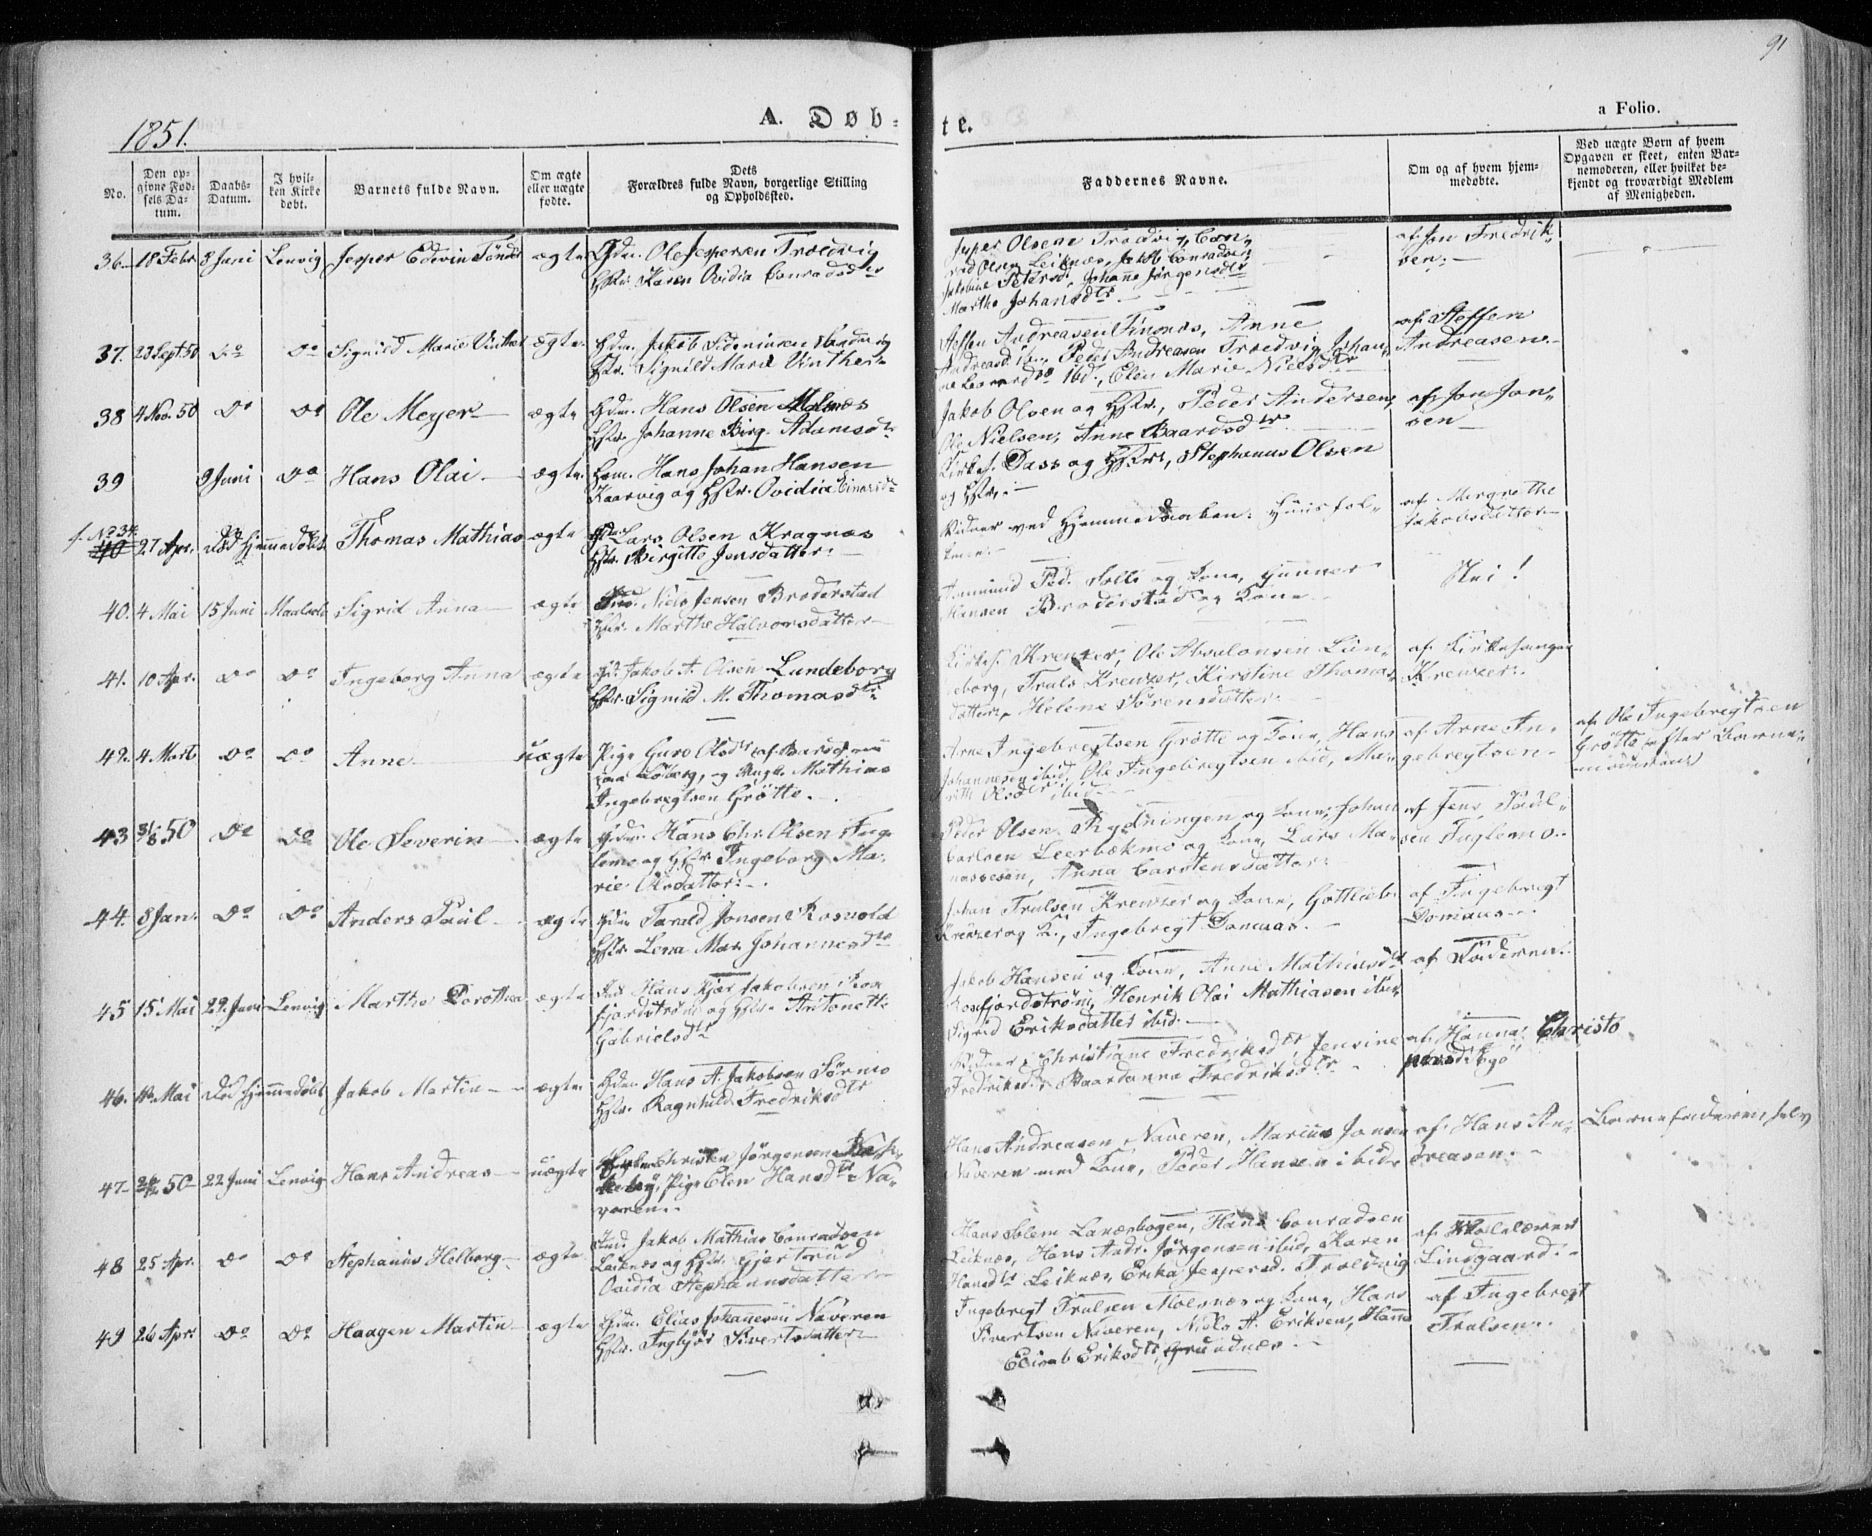 91
1851.
A. Døb-
te.
a Folio.
No.
Den op-
givne Fød-
sels Da-
tum.
Daabs-
Datum.
I hvil-
ken Kirke
døbt.
Barnets fulde Navn.
Om ægte
eller uægte
fødte.
Dets
Forældres fulde Navn, borgerlige Stilling
og Opholdssted.
Faddernes Navne.
Om og af hvem hjem-
medøbte.
Ved uægte Børn af hvem
Opgaven er skeet, enten Bar-
nemoderen, eller hvilket be-
kjendt og troværdigt Medlem
af Menigheden.
36 18 Febr 8 Juni Lenvig Jesper Edevin Tønder ægte
Gdm. Ole Jespersen Troldvig
Hstr. Karen Ovidia Conradsdtr
Jesper Olsen Troldvig, Con-
rad Olsen Leiknæs, Jakob Conradsen
Jakobine Petersd., Johanne Jørgensdtr
Martha Johansdtr
af Jon Fredrik-
sen.
37. 23 Sept. 50 Do Do Signild Marie Vinther ægte
Hstr. Signild Marie Vinther
Steffen Andreasen Finnes, Anne
Andreasd. ib., Peder Andreasen Troldvig, Johan-
ibd., Elen Marie Nielsdtr
af Steffen
Andreasen
38 4 Nov. 50 Do Do Ole Meyer ægte
Gdm. Hans Olsen Molnes
Hstr. Johanne Birg. Adamsdtr
Jakob Olsen og Hstr., Peder Andersen,
Ole Nielsen, Anne Baardsdtr
af Jon Jon-
sen
39 9 Juni Do Hans Olai ægte
Hans Johan Hansen
Kaarvig og Hstr. Ovidia Einarsdtr
Kirkes. Dass og Hstr., Stephanus Olsen
og Hstr.
f. No 34.
40 27 Apr. Død hjemmedøbt Thomas Mathias ægte
Lars Olsen Kragnæs
Hstr. Birgitte Jensdatter
Vidner ved Hjemmedaaben: Huusfol-
kene.
af Mergrethe
Jakobsdatter
40. 4 Mai 15 Juni Maalselv Sigrid Anna ægte
Niels Jensen Broderstad
Hstr. Marthe Halvorsdatter
Aamund Ped. Solli og Kone, Gunner
Hansen Broderstad og Kone
Nei!
41. 10 Apr. Do Do Ingeborg Anna ægte
Jakob A. Olsen Lundeborg
Hstr. Signild M. Thomasdtr
Kirkes. Kreutzer, Ole Absalonsen Lun-
deborg, Truls Kreutzer, Kirstine Thomas-
datter, Helene Sørensdatter
af Kirkesanger
Kreutzer.
42. 4 Marts Do Do Anne uægte
Pige Guro Olsdtr af Bardo nu
paa Kobierg, og Ungk. Mathias
Ingebregtsen Grøtte.
Arne Ingebregtsen Grøtte og Kone, Hans
Johannesen ibid, Ole Ingebregtsen ibid, Ma-
rith Olsdtr ibid
af Arne In-
gebregtsen
af Ole Ingebregtsen
Grøtte efter Barne-
moderens
43 31/8 50 Do Do Ole Severin ægte
Gdm Hans Chr. Olsen Fug-
lemo og Hstr. Ingeborg Ma-
rie Olsdatter
Peder Olsen Rydningen og Kone, Johan
Carlsen Leerbækmo og Kone, Lars Ma-
nassesen, Anna Carstensdatter
af Jens Paul-
sen Fuglemo.
44. 8 Jan. Do Do Anders Paul ægte
Gdm Tarald Jonsen Rosvold
Hstr. Lena Mar. Johannesdtr
Johan Trulsen Kreutzer og Kone, Gottlieb
Kreutzer og K., Ingebregt Domaas.
af Ingebregt
Domaas.
45 15 Mai 29 Juni Lenvig Marthe Dorothea ægte
Hans Kjær Jakobsen Ros-
fjordstrøm og Hstr. Antonette
Gabrielsdtr
Jakob Hansen og Kone, Anne Mathiasdtr
Rosfjordstrøm, Henrik Olai Mathiasen ibid,
Sigrid Eriksdatter ibid.
af Faderen.
46. Mai Død hjemmedøbt Jakob Martin ægte
Gdm. Hans A. Jakobsen Sørmo
Hstr. Ragnhild Fredriksdtr
Vidner: Christiane Fredriksdtr, Jensine
Fredriksd., Baardanna Fredriksdtr
af Hanna Christo
persd.
47 50 22 Juni Lenvig Hans Andreas uægte
Christen Jørgensen
Pige Elen Hansdtr Na-
varen.
Hans Andreasen Naveren, Marius Jonsen
Naveren med Kone, Peder Hansen ibid
af Hans An-
dreasen.
Barnefaderen selv
48 25 Apr. Do Do Stephanus Helberg ægte
Ind. Jakob Mathias Conradsen
Leiknæs og Hstr. Gjertrud
Ovidia Stephansdatter
Hans Lanæsbogen, Hans Conradsen
Leiknæs, Hans Andr. Jørgensen ibid, Karen
Hansdtr Leiknæs, Erika Jespersd. Troldvig
af Skolelærer
Lindgaard.
49 26 Apr. Do Do Haagen Martin ægte
Gdm. Elias Johannesen Naveren
Hstr. Ingbjør Sivertsdatter
Ingebregt Trulsen Molsnæs og Kone, Hans
Sivertsen Naveren, Niels A. Eriksen, Hanna
Elisab Eriksdtr, Grundnæs.
af Ingebregt
Trulsen.